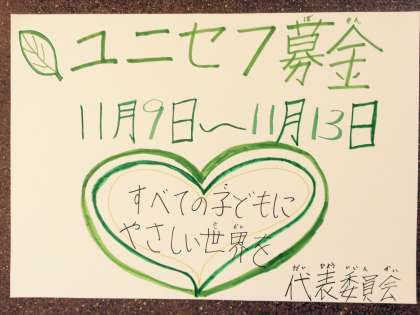 ユニセフ募金
ぼ きん
11月9日～11月13日
すべての子どもに
やさしい世界を
せ かい
代表委員会
だい ひょう い いん かい